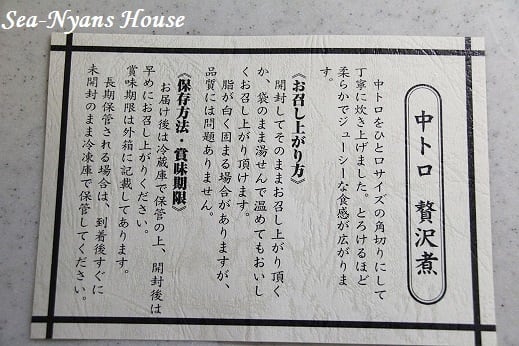 Sea-Nyans House
中トロ 贅沢煮
中トロをひと口サイズの角切りにして
丁寧に炊き上げました。とろけるほど
柔らかでジューシーな食感が広がりま
す。
《お召し上がり方》
開封してそのままお召し上がり頂く
か、袋のまま湯せんで温めてもおいし
くお召し上がり頂けます。
脂が白く固まる場合がありますが、
品質には問題ありません。
《保存方法・賞味期限》
お届け後は冷蔵庫で保管の上、開封後は
早めにお召し上がりください。
賞味期限は外箱に記載してあります。
長期保管される場合は、到着後すぐに
未開封のまま冷凍庫で保管してください。